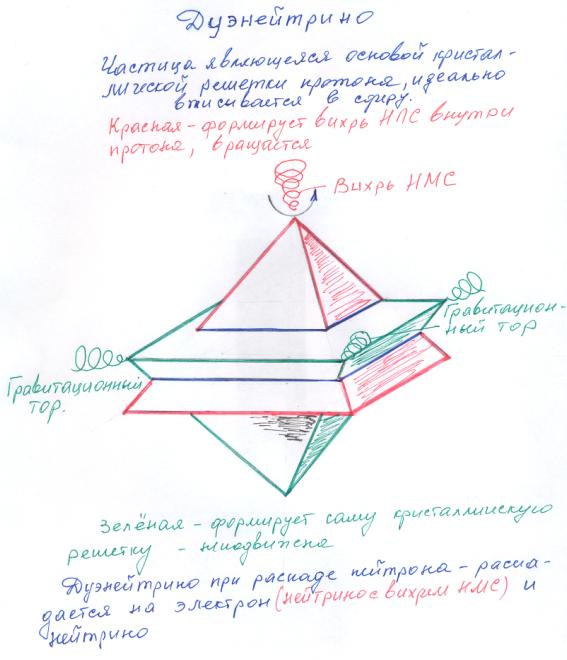 Дуэнейтрино
Частица являющеяся основой кристал-
лической решетки протоня, идеально
вписывается в сферу.
Красная - формирует вихрь НМС внутри
протоня, вращается
Вихрь НМС
Гравитацион-
ный тор
Гравитационный
тор.
Зелёная - формирует саму кристаллискую
решетку - неподвижня
Дуэнейтрино при распаде нейтрона - распа-
дается на электрон (нейтрино с вихрем НМС) и
нейтрино